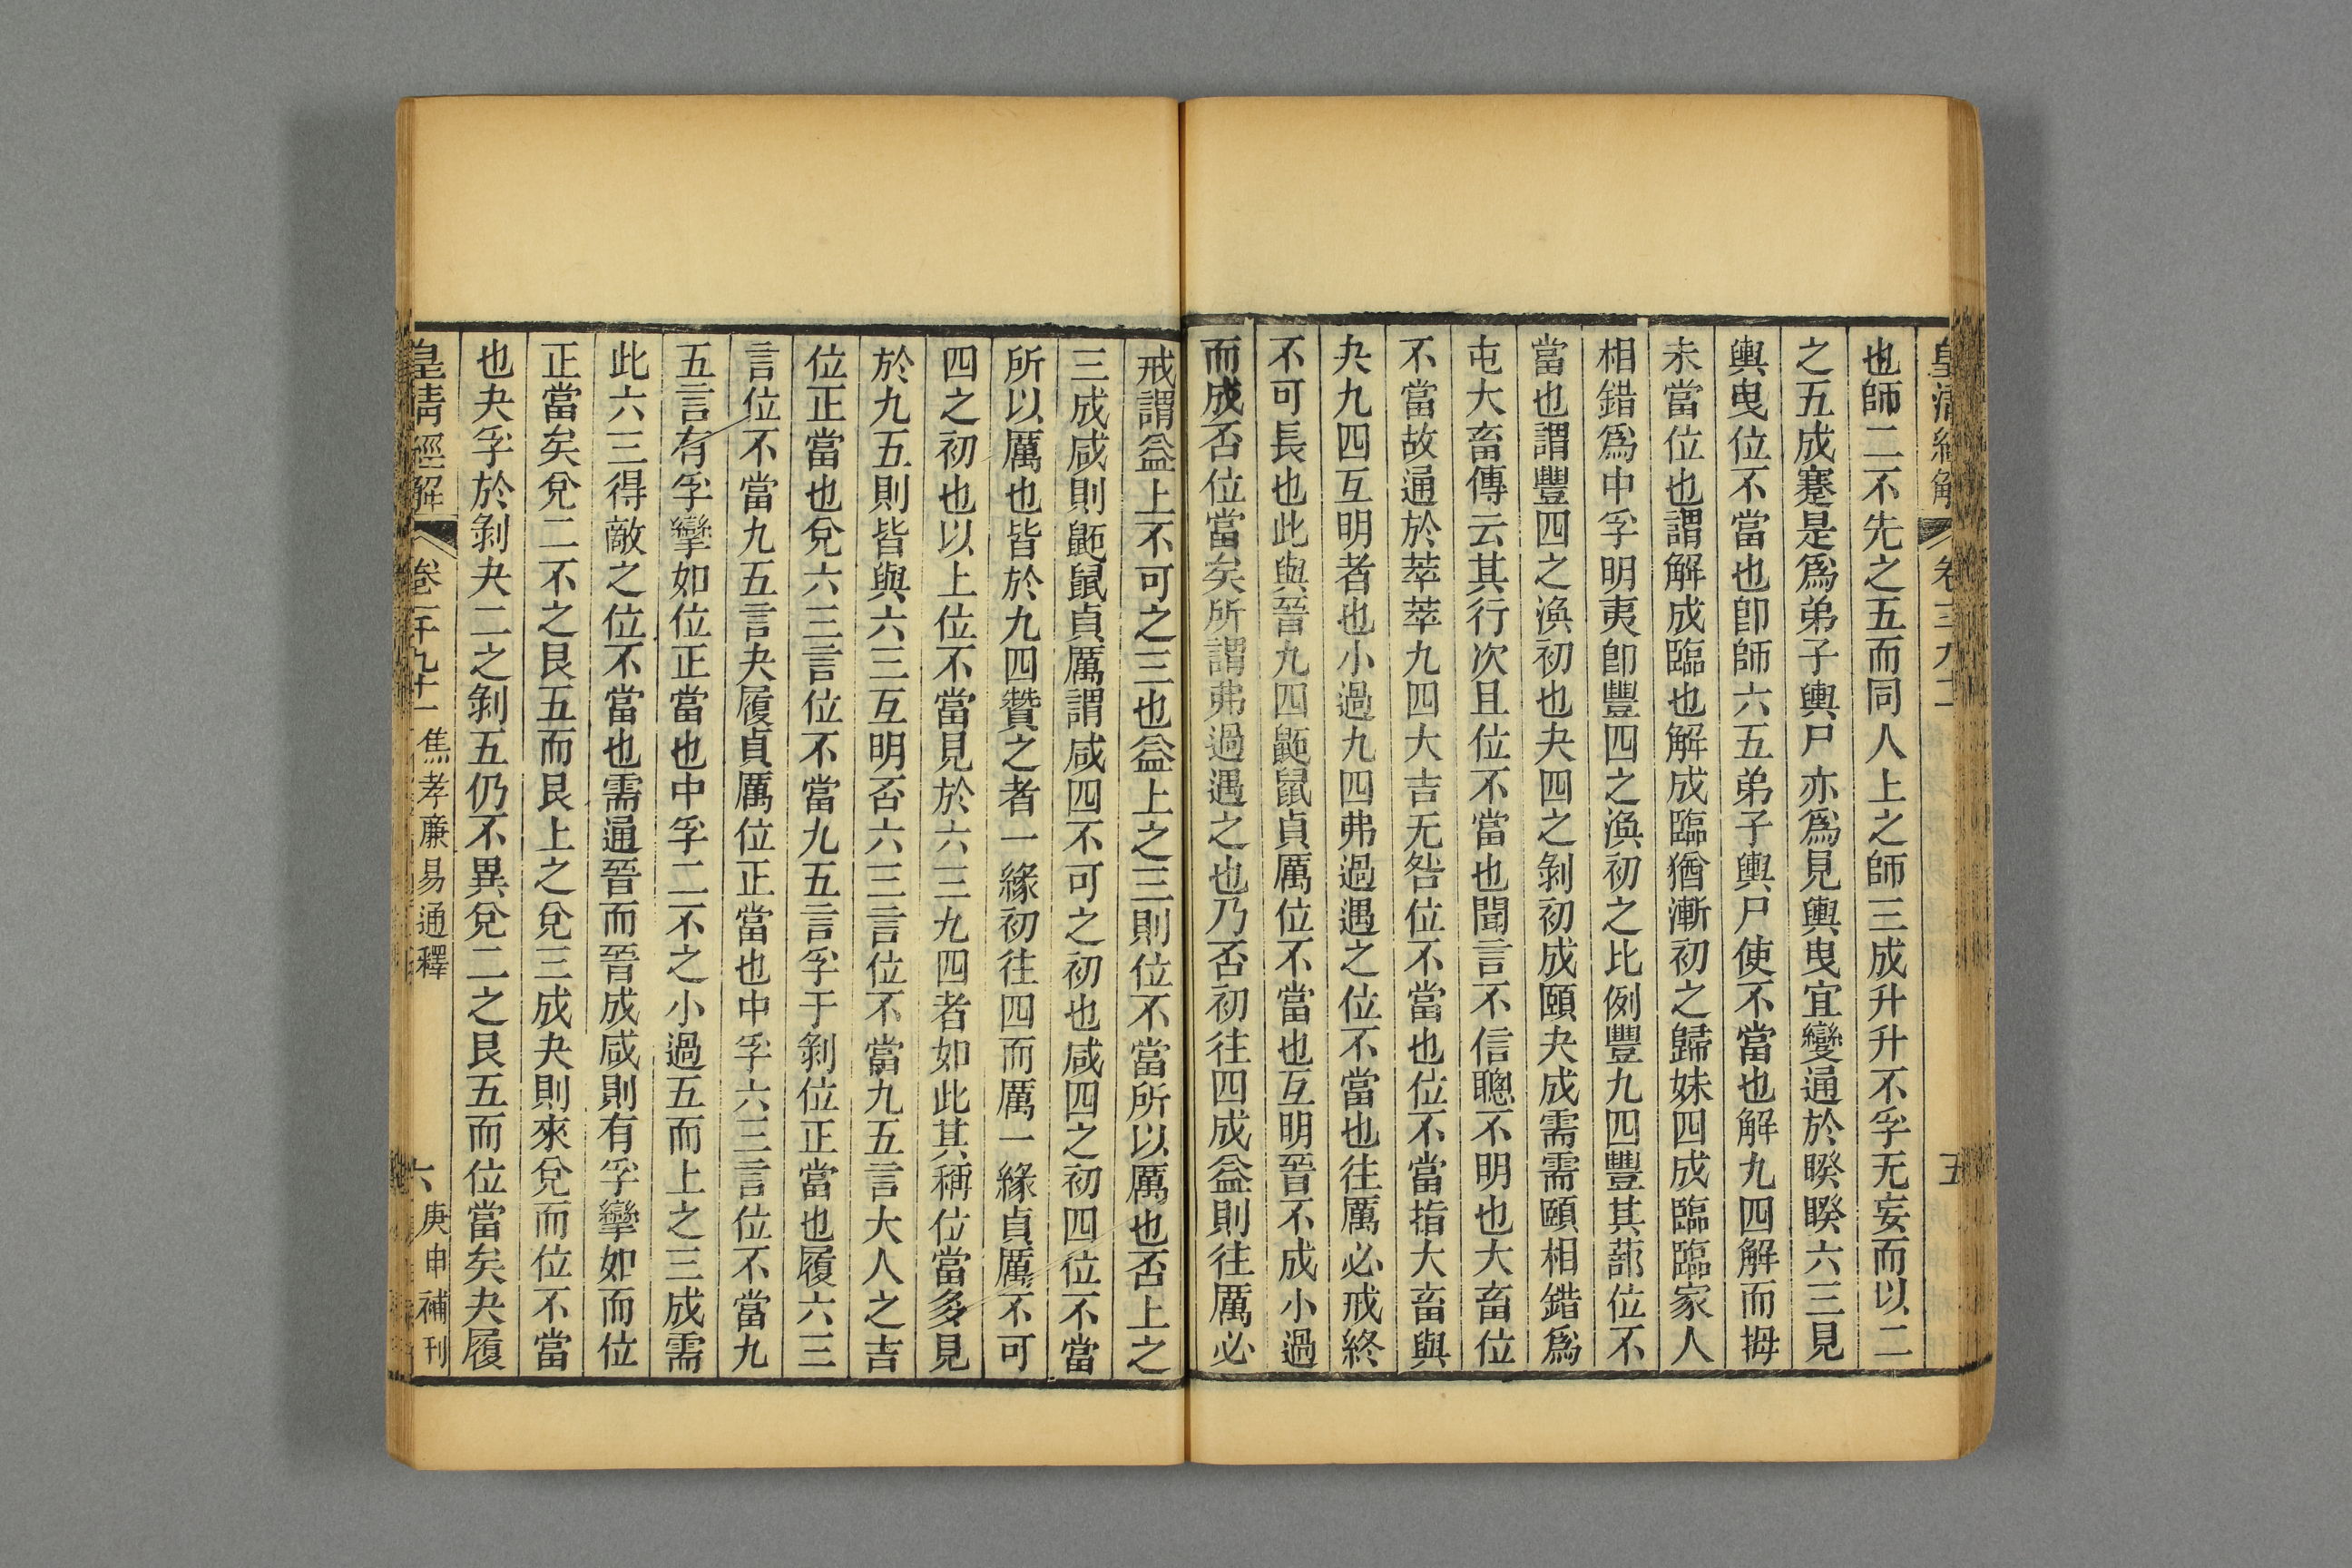 也師二不先之五而同人上之師三成升升不孚无妄而以二
之五成蹇是爲弟子輿尸亦爲見輿曳宜變通於睽睽六三見
輿曳位不當也卽師六五弟子輿尸使不當也解九四解而拇
未當位也謂解成臨也解成臨猶漸初之歸妹四成臨臨家人
相錯爲中孚明夷卽豐四之渙初之比例豐九四豐其蔀位不
當也謂豐四之渙初也夬四之剝初成頤夬成需需頤相錯爲
屯大畜傳云其行次且位不當也聞言不信聰不明也大畜位
不當故通於萃萃九四大吉无咎位不當也位不當指大畜與
夬九四互明者也小過九四弗過遇之位不當也往厲必戒終
不可長也此與晉九四鼫鼠貞厲位不當也互明晉不成小過
而成否位當矣所謂弗過遇之也乃否初往四成益則往厲必
戒謂益上不可之三也益上之三則位不當所以厲也否上之
三成咸則鼫鼠貞厲謂咸四不可之初也咸四之初四位不當
所以厲也皆於九四贊之者一緣初往四而厲一緣貞厲不可
四之初也以上位不當見於六三九四者如此其稱位當多見
於九五則皆與六三互明否六三言位不當九五言大人之吉
位正當也兌六三言位不當九五言孚于剝位正當也履六三
言位不當九五言夬履貞厲位正當也中孚六三言位不當九
五言有孚攣如位正當也中孚二不之小過五而上之三成需
此六三得敵之位不當也需通晉而晉成咸則有孚攣如而位
正當矣兌二不之艮五而艮上之兌三成夬則來兌而位不當
也夬孚於剝夬二之剝五仍不異兌二之艮五而位當矣夬履
皇淸經解
卷一千九十一 焦孝廉易通釋
六 庚申補刊